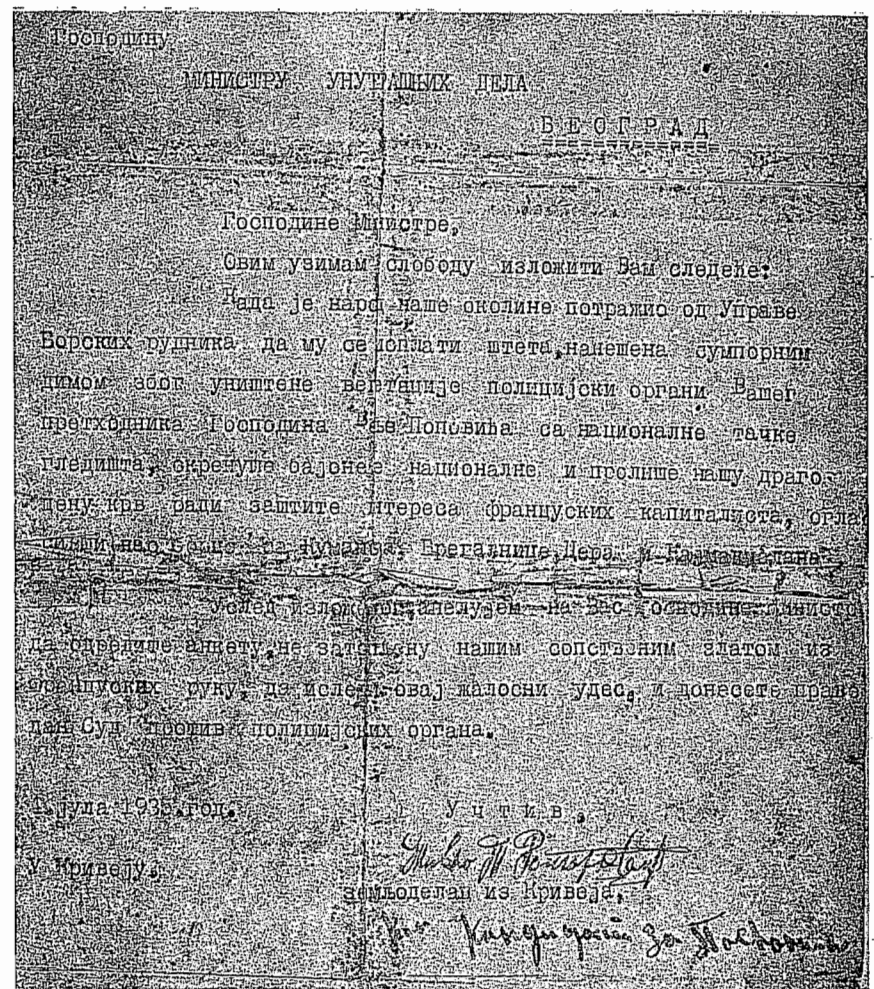 Господину
МИНИСТРУ УНУТРАШНИХ ДЕЛА
БЕОГРАД
Господине Министре,
Овим узимам слободу изложити Вам следеће:
Када је народ наше околине потражио од Управе
Борских рудника да му се исплати штета, нанешена сумпорним
димом због уништене вегтације полицијски органи Вашег
претходника Господина Поповића са националне тачке
гледишта, окренуше бајонее националне и пролише нашу драго-
цену крв ради заштите итереса француских капиталиста,
Куманова, Брегалнице, Цера и Кајмакчалана.
Услед изложеног апелујем на Вас Господине Министре
да одредите анкету, не затровану нашим сопственим златом из
француских руку, да иследи овај жалосни удес, и донесете праве-
дан Суд против полицијских органа.
јула 1935 год.
Учтив,
У Кривељу.
земљоделац из Кривеља,
Кандидат за